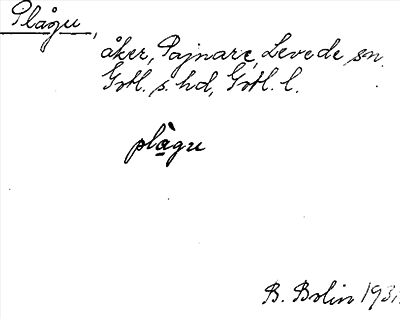 Plågu,
åker, Pajnare, Levede sn.
Gotl. s. hd, Gotl. l.
plàgu
B. Bolin 1931.